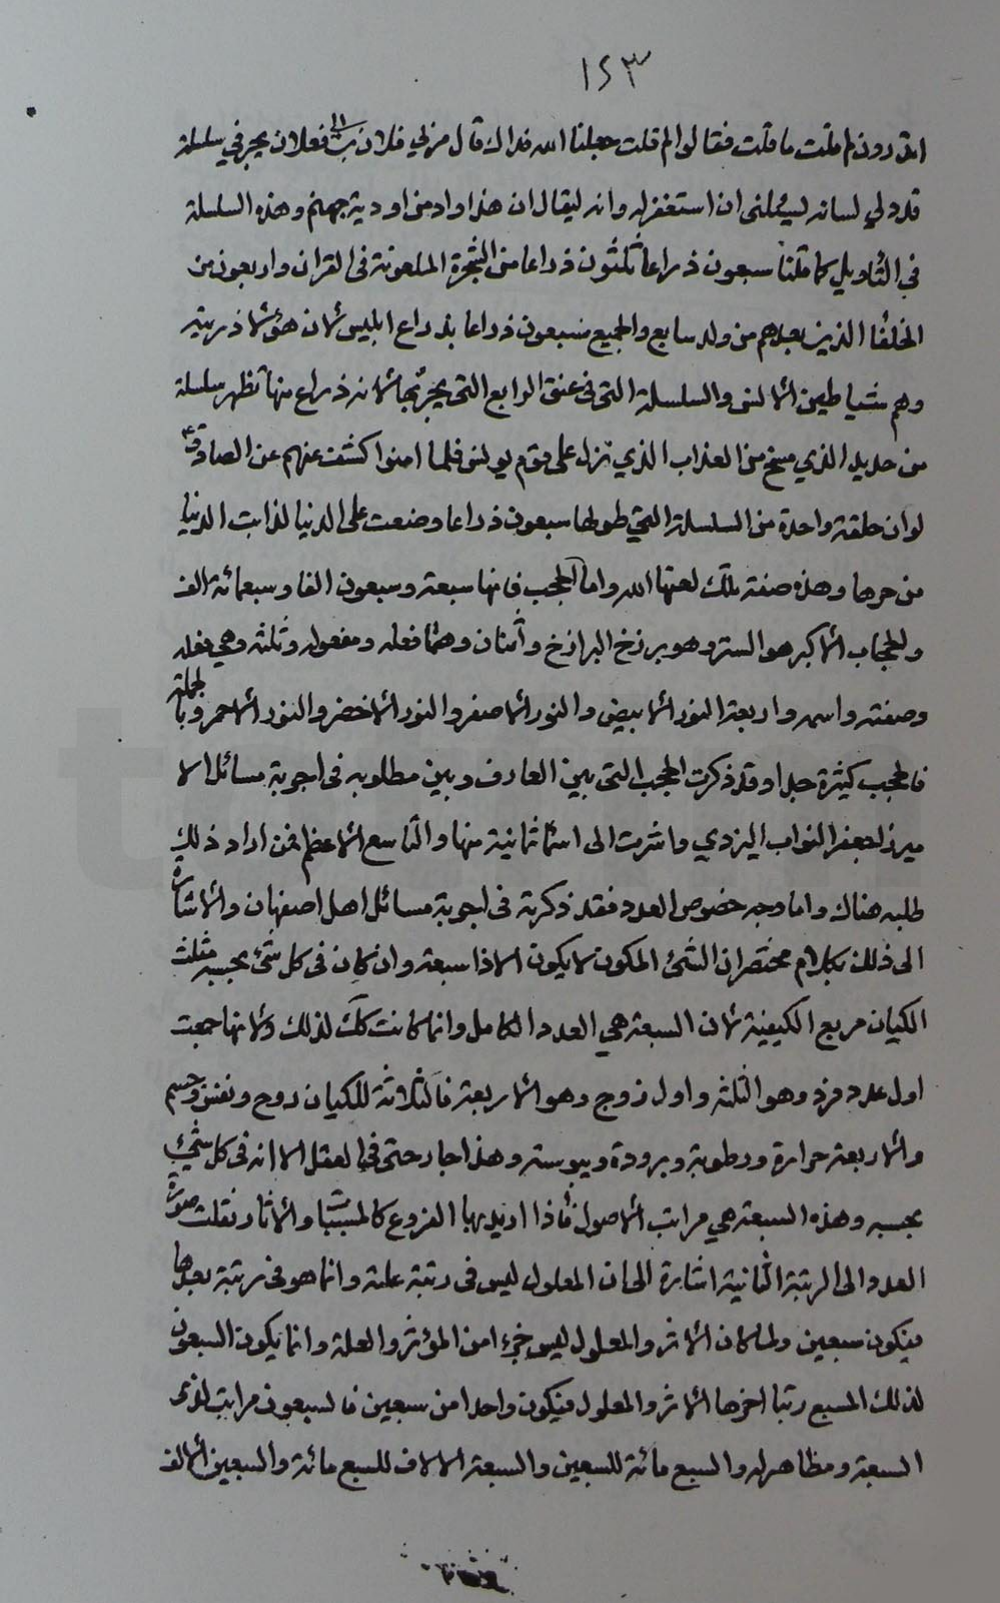 ١٤٣
اتدرون لم قلت ما قلت فقالوا لم قلت جعلنا الله فداك قال مر بي فلان بن فلان يجر في سلسلة
قد دلي لسانه ليسئلني ان استغفر له وانه ليقال ان هذا واد من اودية جهنم وهذه السلسلة
في التأويل كما قلنا سبعون ذراعا ثلثون ذراعا من الشجرة الملعونة في القران واربعون من
الخلفا الذين بعدهم من ولد سابع والجميع سبعون ذراعا بذراع ابليس لان هؤلا ذريته
وهم شياطين الانس والسلسلة التي في عنق الرابع التي يجر بها لانه ذراع منها تظهر سلسلة
من حديد الذي مسخ من العذاب الذي نزل على قوم يونس فلما امنوا كشف عنهم عن الصادق ع
لو ان حلقة واحدة من السلسلة التي طولها سبعون ذراعا وضعت على الدنيا لذابت الدنيا
من حرها وهذه صفة تلك لعنها الله واما الحجب فانها سبعة وسبعون الفا وسبعمائة الف
والحجاب الاكبر هو الستر وهو برزخ البرازخ واثنان وهما فعله ومفعوله وثلثه وهي فعله
وصفته واسمه واربعة النور الابيض والنور الاصفر والنور الاخضر والنور الاحمر وبالجملة
فالحجب كثيرة جدا وقد ذكرت الحجب التي بين العارف وبين مطلوبه في اجوبة مسائل الا
ميرزا جعفر النواب اليزدي واشرت الى اسما ثمانية منها والتاسع الاعظم فمن اراد ذلك
طلبه هناك واما وجه خصوص العدد فقد ذكرته في اجوبة مسائل اهل اصفهان والاشارة
الى ذلك بكلام مختصر ان الشئ المكون لا يكون الا ذا سبعة وان كان في كل شئ بحسبه مثلث
الكيان مربع الكيفية لان السبعة هي العدد الكامل وانما كانت كك لذلك ولانها جمعت
اول عدد فرد وهو الثلثة واول زوج وهو الاربعة فالثلاثة للكيان روح ونفس وجسم
والاربعة حرارة ورطوبة وبرودة ويبوسة وهذا جار حتى في العقل الا انه في كل شئ
بحسبه وهذه السبعة هي مراتب الاصول فاذا اريد بها الفروع كالمسببات والاثار نقلت صورة
العدد الى الرتبة الثانية اشارة الى ان المعلول ليس في رتبة علته وانما هو في رتبة بعدها
فيكون سبعين ولما كان الاثر والمعلول ليس جزءا من المؤثر والعلة وانما يكون السبعون
لذلك المسبع رتبا اخرها الاثر والمعلول فيكون واحدا من سبعين فالسبعون مراتب لذى
السبعة ومظاهر له والسبع مائة للسبعين والسبعة الالاف للسبع مائة والسبعين الالف